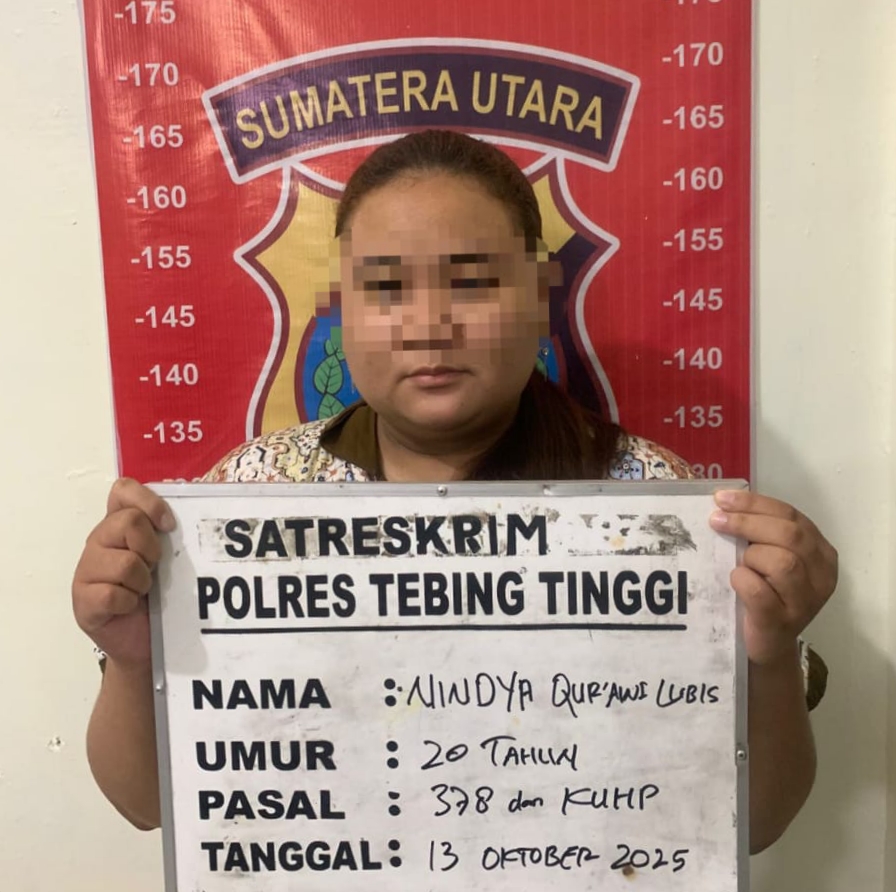 -175
-170
-170
-165
-165
-160
-160
-155
-155
-145
-145
-140
-140
-135
-135
SUMATERA UTARA
SATRESKRIM
POLRES TEBING TINGGI
NAMA : NINDYA QUR'ANI LUBIS
UMUR : 20 TAHUN
PASAL : 378 dan KUHP
TANGGAL: 13 OKTOBER 2025